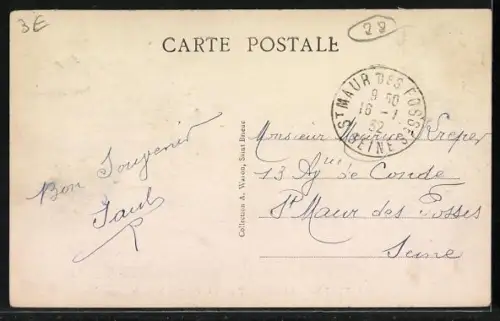 3E
28
CARTE POSTALE
ST MAUR DES FOSSES
9 50
16 - 1
32
SEINE
Collection A. Wason, Saint
Monsieur Maurice
13 Av de Condé
St Maur des Fossés
Seine
Bon Souvenir
Paul
P